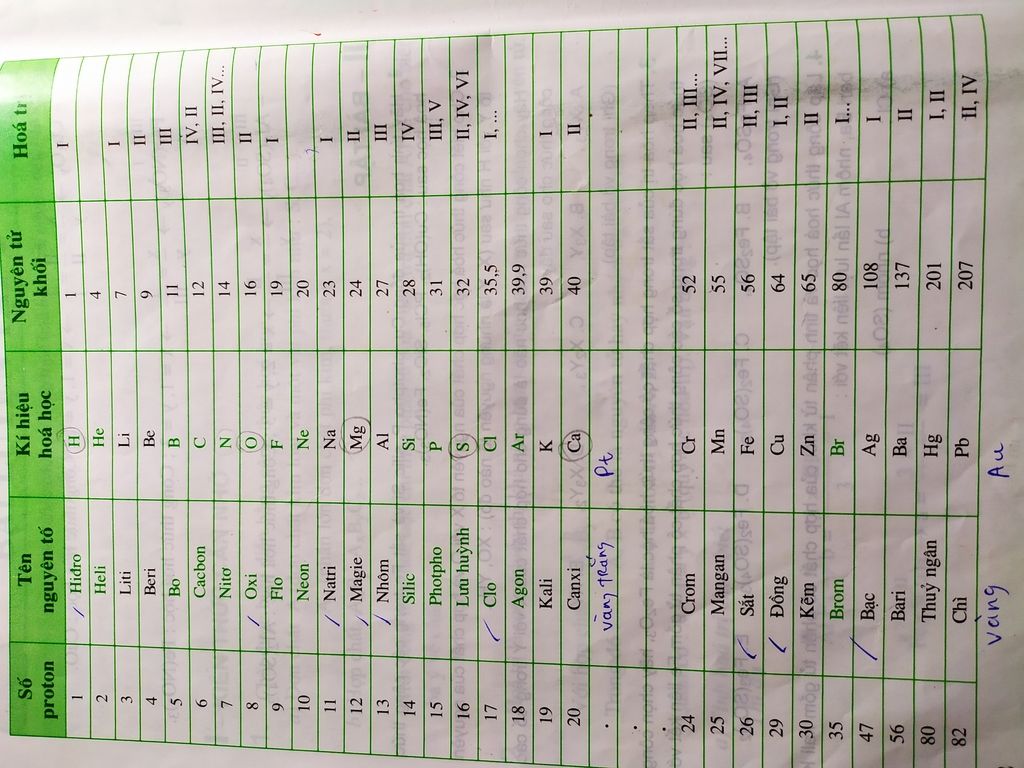 Số proton Tên nguyên tố Kí hiệu hoá học Nguyên tử khối Hoá tr
1 Hiđro H 1 I
2 Heli He 4
3 Liti Li 7 I
4 Beri Be 9 II
5 Bo B 11 III
6 Cacbon C 12 IV, II
7 Nitơ N 14 III, II, IV...
8 Oxi O 16 II
9 Flo F 19 I
10 Neon Ne 20
11 Natri Na 23 I
12 Magie Mg 24 II
13 Nhôm Al 27 III
14 Silic Si 28 IV
15 Photpho P 31 III, V
16 Lưu huỳnh S 32 II, IV, VI
17 Clo Cl 35,5 I, ...
18 Agon Ar 39,9
19 Kali K 39 I
20 Canxi Ca 40 II
vàng trắng Pt
24 Crom Cr 52 II, III...
25 Mangan Mn 55 II, IV, VII...
26 Sắt Fe 56 II, III
29 Đồng Cu 64 I, II
30 Kẽm Zn 65 II
35 Brom Br 80 I...
47 Bạc Ag 108 I
56 Bari Ba 137 II
80 Thuỷ ngân Hg 201 I, II
82 Chì Pb 207 II, IV
vàng Au